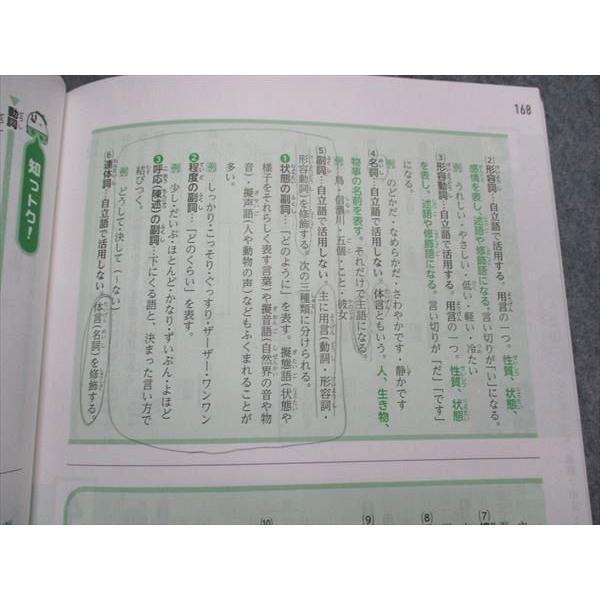 168
(2)形容詞…自立語で活用する。用言の一つ。性質、状態、
感情を表し、述語や修飾語になる。言い切りが「い」になる。
例 うれしい・やさしい・低い・軽い・冷たい
(3)形容動詞…自立語で活用する。用言の一つ。性質、状態
を表し、述語や修飾語になる。言い切りが「だ」「です」
になる。
例 のどかだ・なめらかだ・さわやかです・静かです
(4)名詞…自立語で活用しない。体言ともいう。人、生き物、
物事の名前を表す。それだけで主語になる。
例 鳥・信濃川・五個・こと・彼女
(5)副詞…自立語で活用しない。主に用言(動詞・形容詞・
形容動詞)を修飾する。次の三種類に分けられる。
❶状態の副詞…「どのように」を表す。擬態語(状態や
様子をそれらしく表す言葉)や擬音語(自然界の音や物
音)・擬声語(人や動物の声)などもふくまれることが
多い。
例 しっかり・こっそり・ぐっすり・ザーザー・ワンワン
❷程度の副詞…「どのくらい」を表す。
例 少し・だいぶ・ほとんど・かなり・ずいぶん・よほど
❸呼応(陳述)の副詞…下にくる語と、決まった言い方で
結びつく。
例 どうして・決して(〜ない)
(6)連体詞…自立語で活用しない。体言(名詞)を修飾する。
知っトク!
▼動詞
(7)
(8)
(9)
(10)